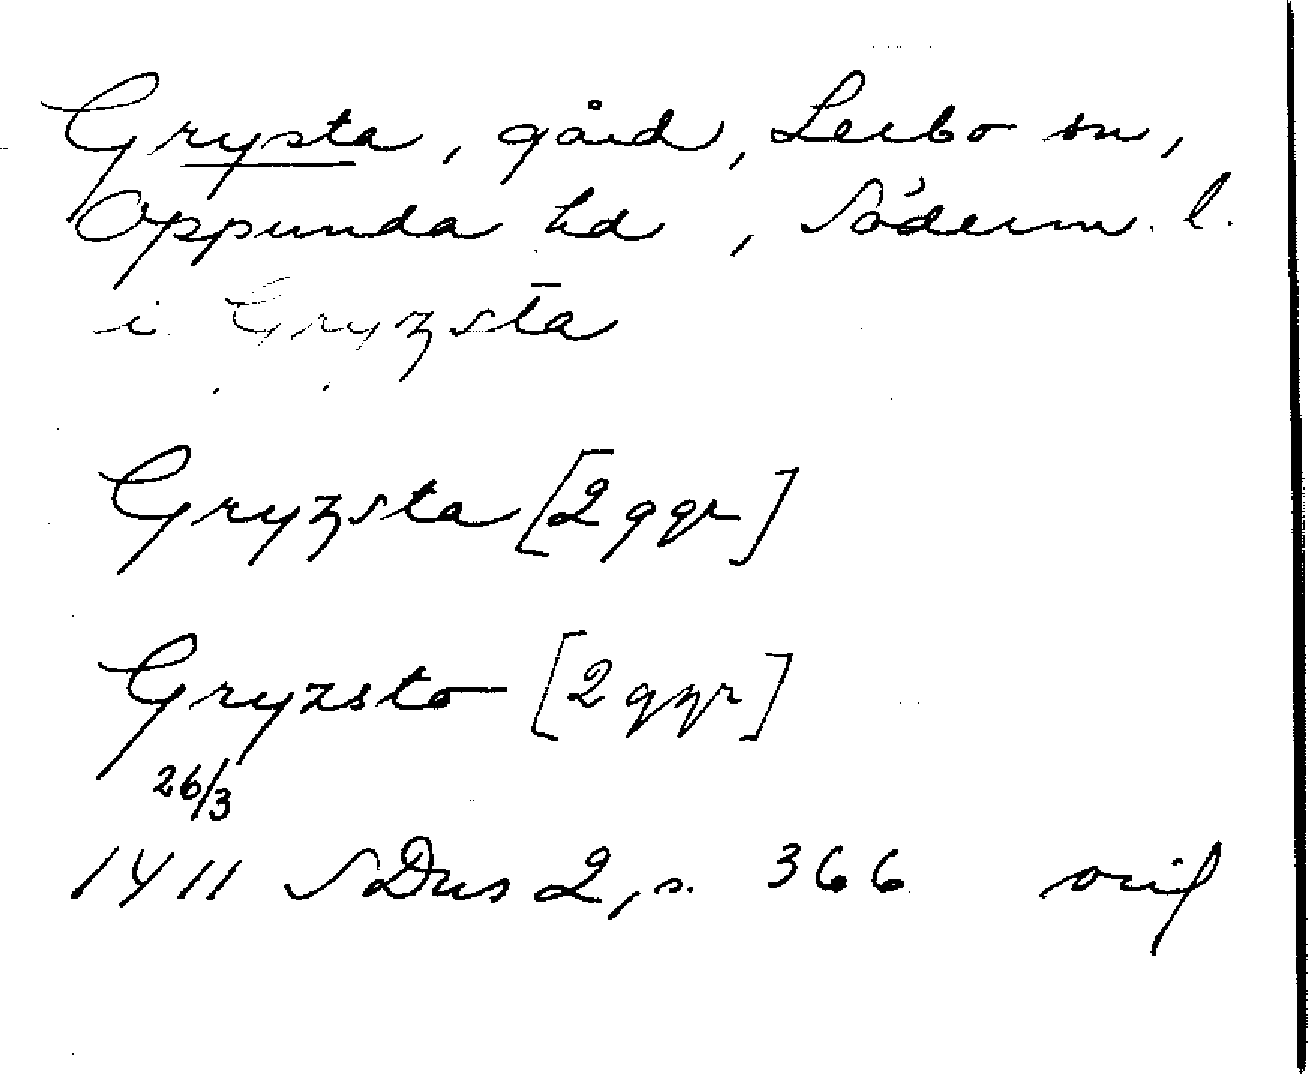 Grysta, gård, Lerbo sn,
Oppunda hd, Söderm. l.
i Gryzsta
Gryzsta [2 ggr]
Gryzsto [2 ggr]
26/3
1411 SDns 2, s. 366 orig